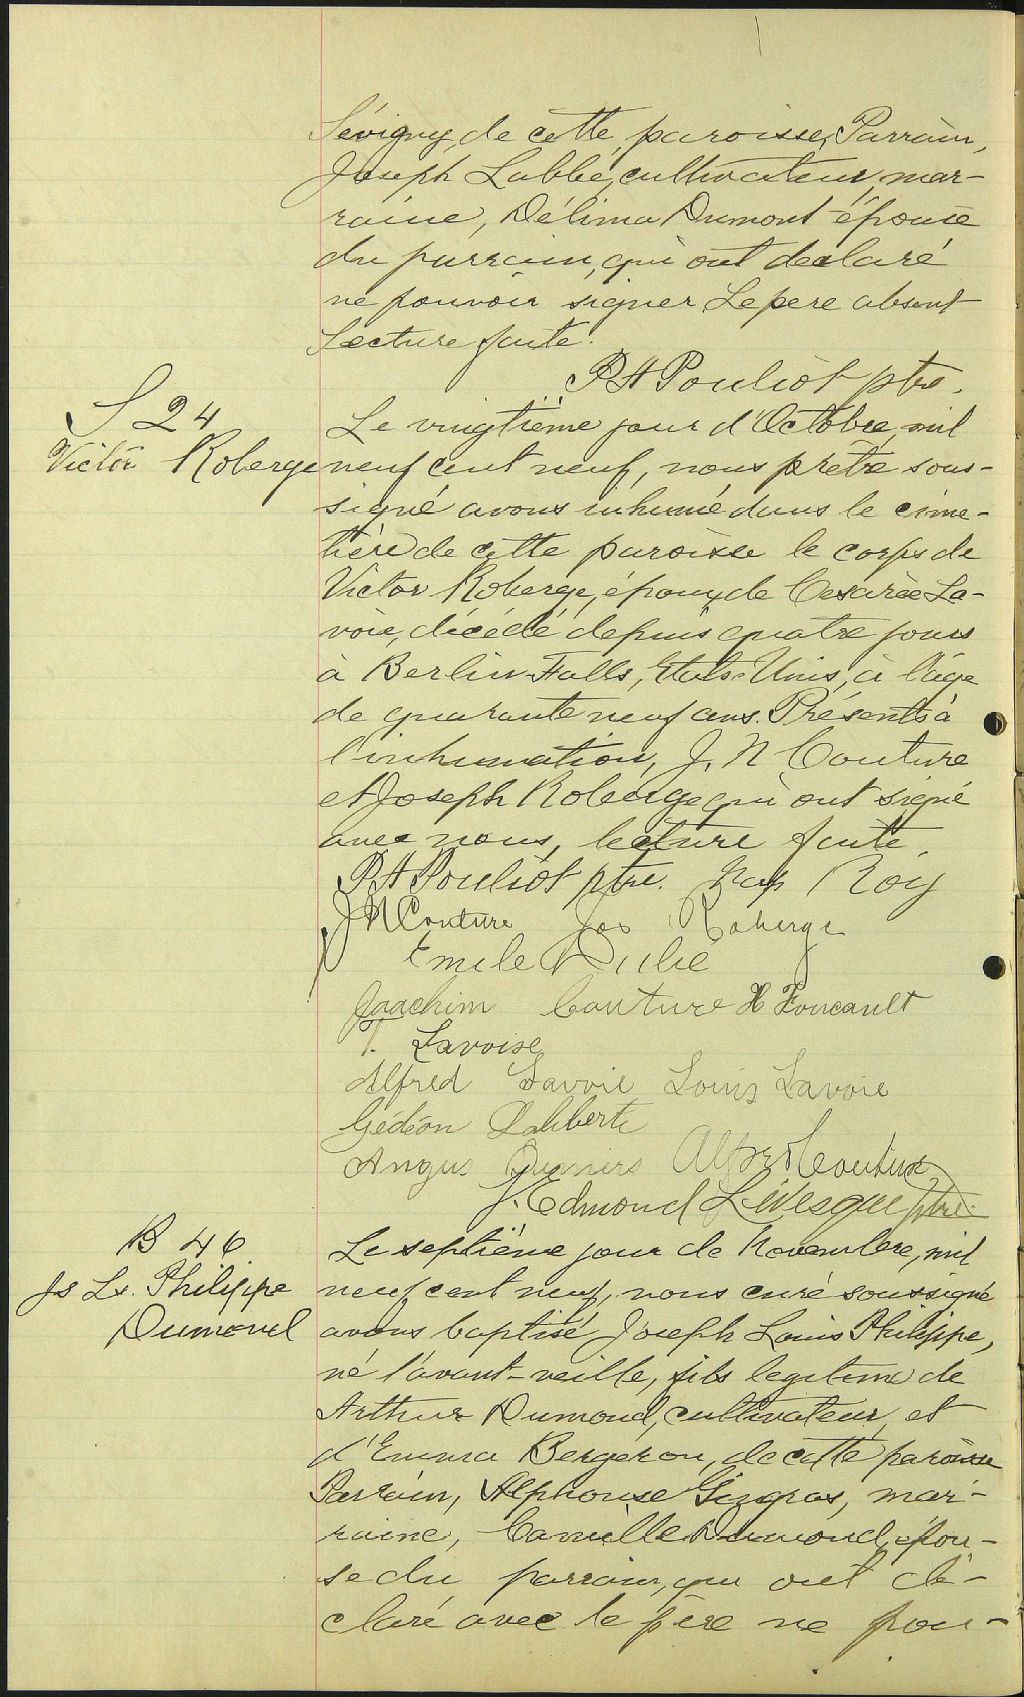 Sévigny, de cette paroisse, Parrain,
Joseph Labbé, cultivateur, mar-
raine, Délima Dumont épouse
du parrain, qui ont declaré
ne pouvoir signer Le pere absent
Lecture faite.
P H Pouliot ptre.
S 24
Victor Roberge
Le vingtième jour d'Octobre, mil
neuf cent neuf, nous prêtre sous-
signé avons inhumé dans le cime-
tière de cette paroisse le corps de
Victor Roberge, époux de Cesarée La-
voie, décédé depuis quatre jours
à Berlin Falls, Etats-Unis, à l'âge
de quarante neuf ans. Présents à
l'inhumation, J. N Couture
et Joseph Roberge qui ont signé
avec nous, lecture faite.
P H Pouliot ptre. Nap Roy
J N Couture Jos Roberge
Emile Dubé
Joachim Couture H Foucault
T. Lavoise
Alfred Lavoie Louis Lavoie
Gédéon Laliberté
Angus Alfred Couture
J. Edmond Lévesque ptre.
B 46
Js Ls. Philippe
Dumond
Le septième jour de Novembre, mil
neuf cent neuf, nous curé soussigné
avons baptisé Joseph Louis Philippe,
né l'avant-veille, fils legitime de
Arthur Dumond, cultivateur, et
d'Emma Bergeron, de cette paroisse
Parrain, Alphonse Gingras, mar-
raine, Camille Dumond, épou-
se du parrain, qui ont dé-
claré avec le père ne pou-